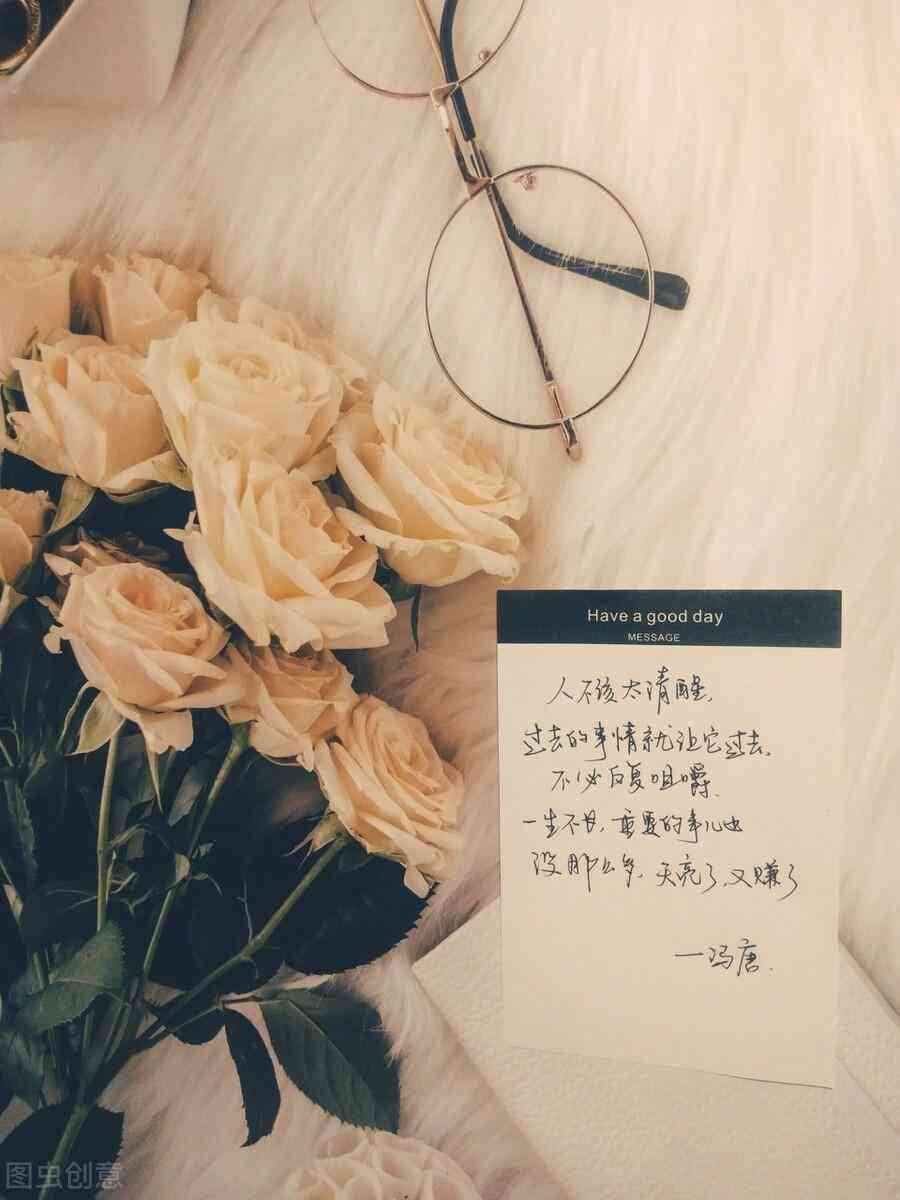 Have a good day
MESSAGE
人不该太清醒,
过去的事情就让它过去,
不必反复咀嚼.
一生不长,重要的事儿也
没那么多,天亮了,又赚了
—冯唐.
图虫创意